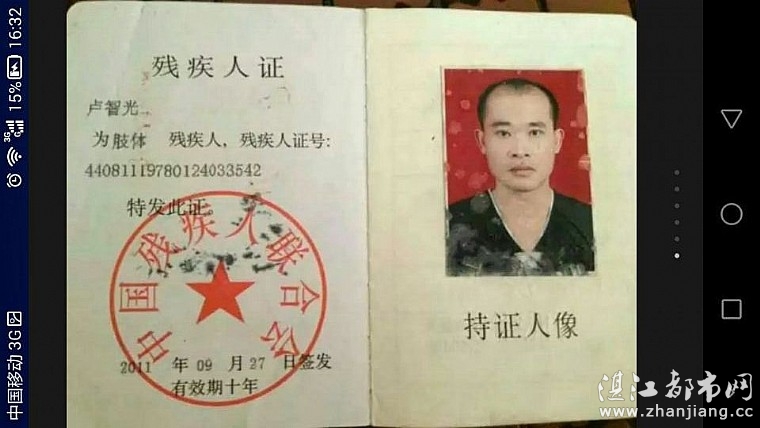 残疾人证
卢智光
为肢体 残疾人，残疾人证号：
44081119780124033542
特发此证。
中国残疾人联合会
2011 年 09 月 27 日签发
有效期十年
持证人像
湛江都市网
www.zhanjiang.cc
中国移动 3G
3G
15%
16:32